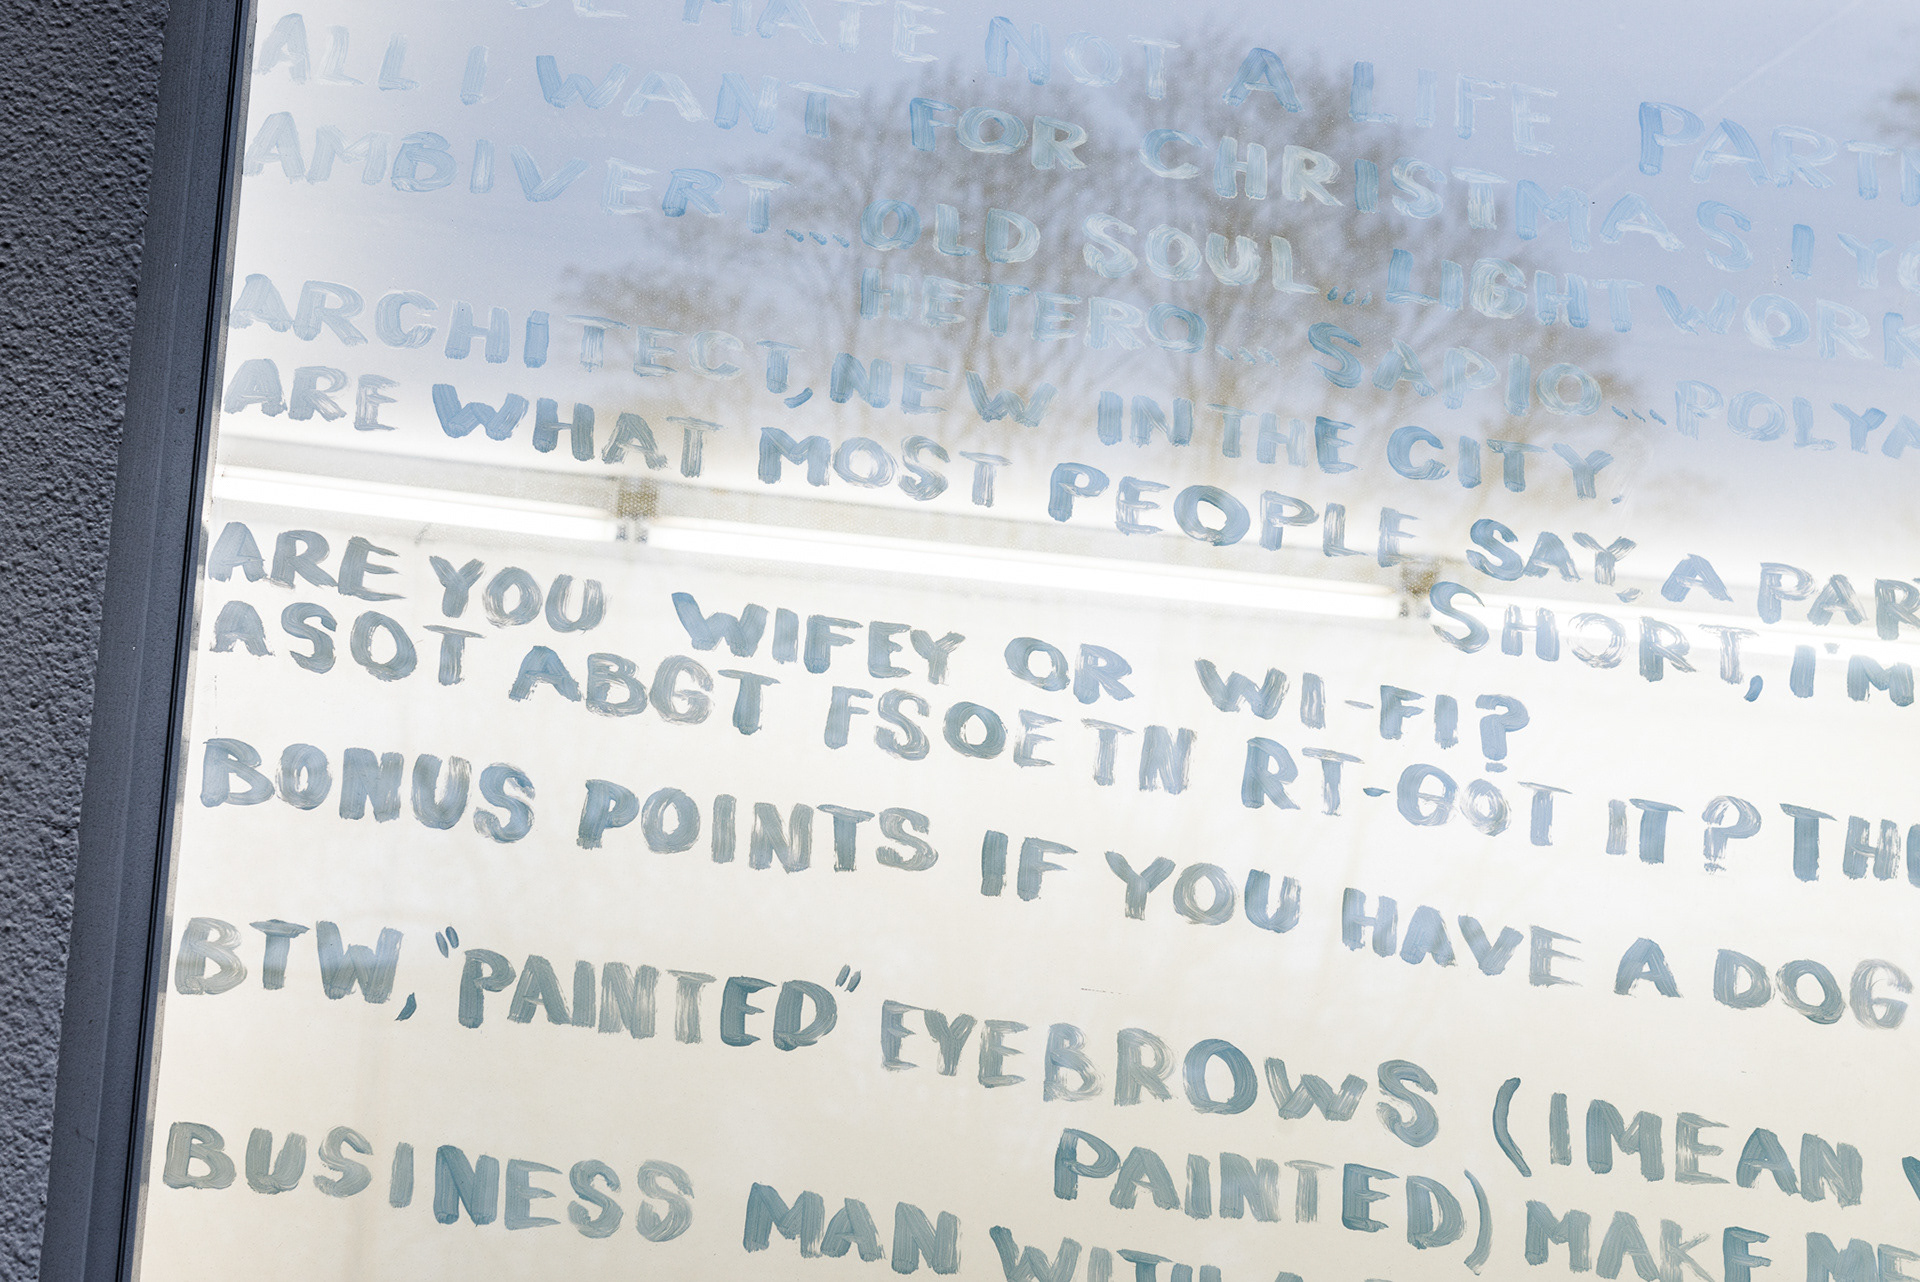 HATE NOT A LIFE
ALL I WANT FOR CHRISTMAS I
AMBIVERT.... OLD SOUL... LIGHTWORK
HETERO.... SAPIO.... POLYA
ARCHITECT, NEW IN THE CITY.
ARE WHAT MOST PEOPLE SAY. A PAR
SHORT, I'M
ARE YOU WIFEY OR WI-FI?
ASOT ABGT FSOE TN RT-GOT IT? THE
BONUS POINTS IF YOU HAVE A DOG
BTW, "PAINTED" EYEBROWS (I MEAN
PAINTED) MAKE ME
BUSINESS MAN WITH A